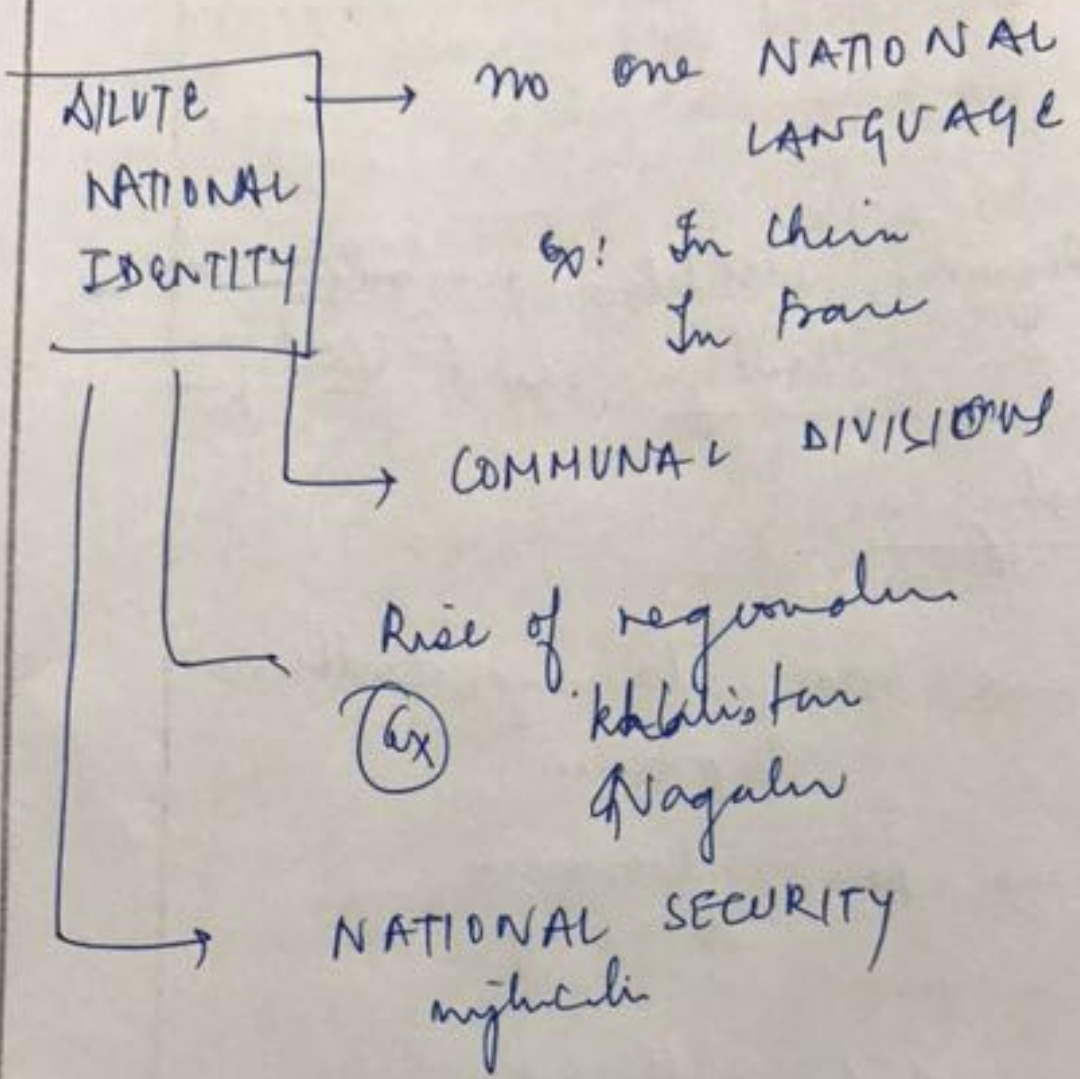 DILUTE
NATIONAL
IDENTITY
no one NATIONAL
LANGUAGE
Ex: In China
In France
COMMUNAL DIVISIONS
Rise of regionalism
Ex Khalistan
Nagalim
NATIONAL SECURITY